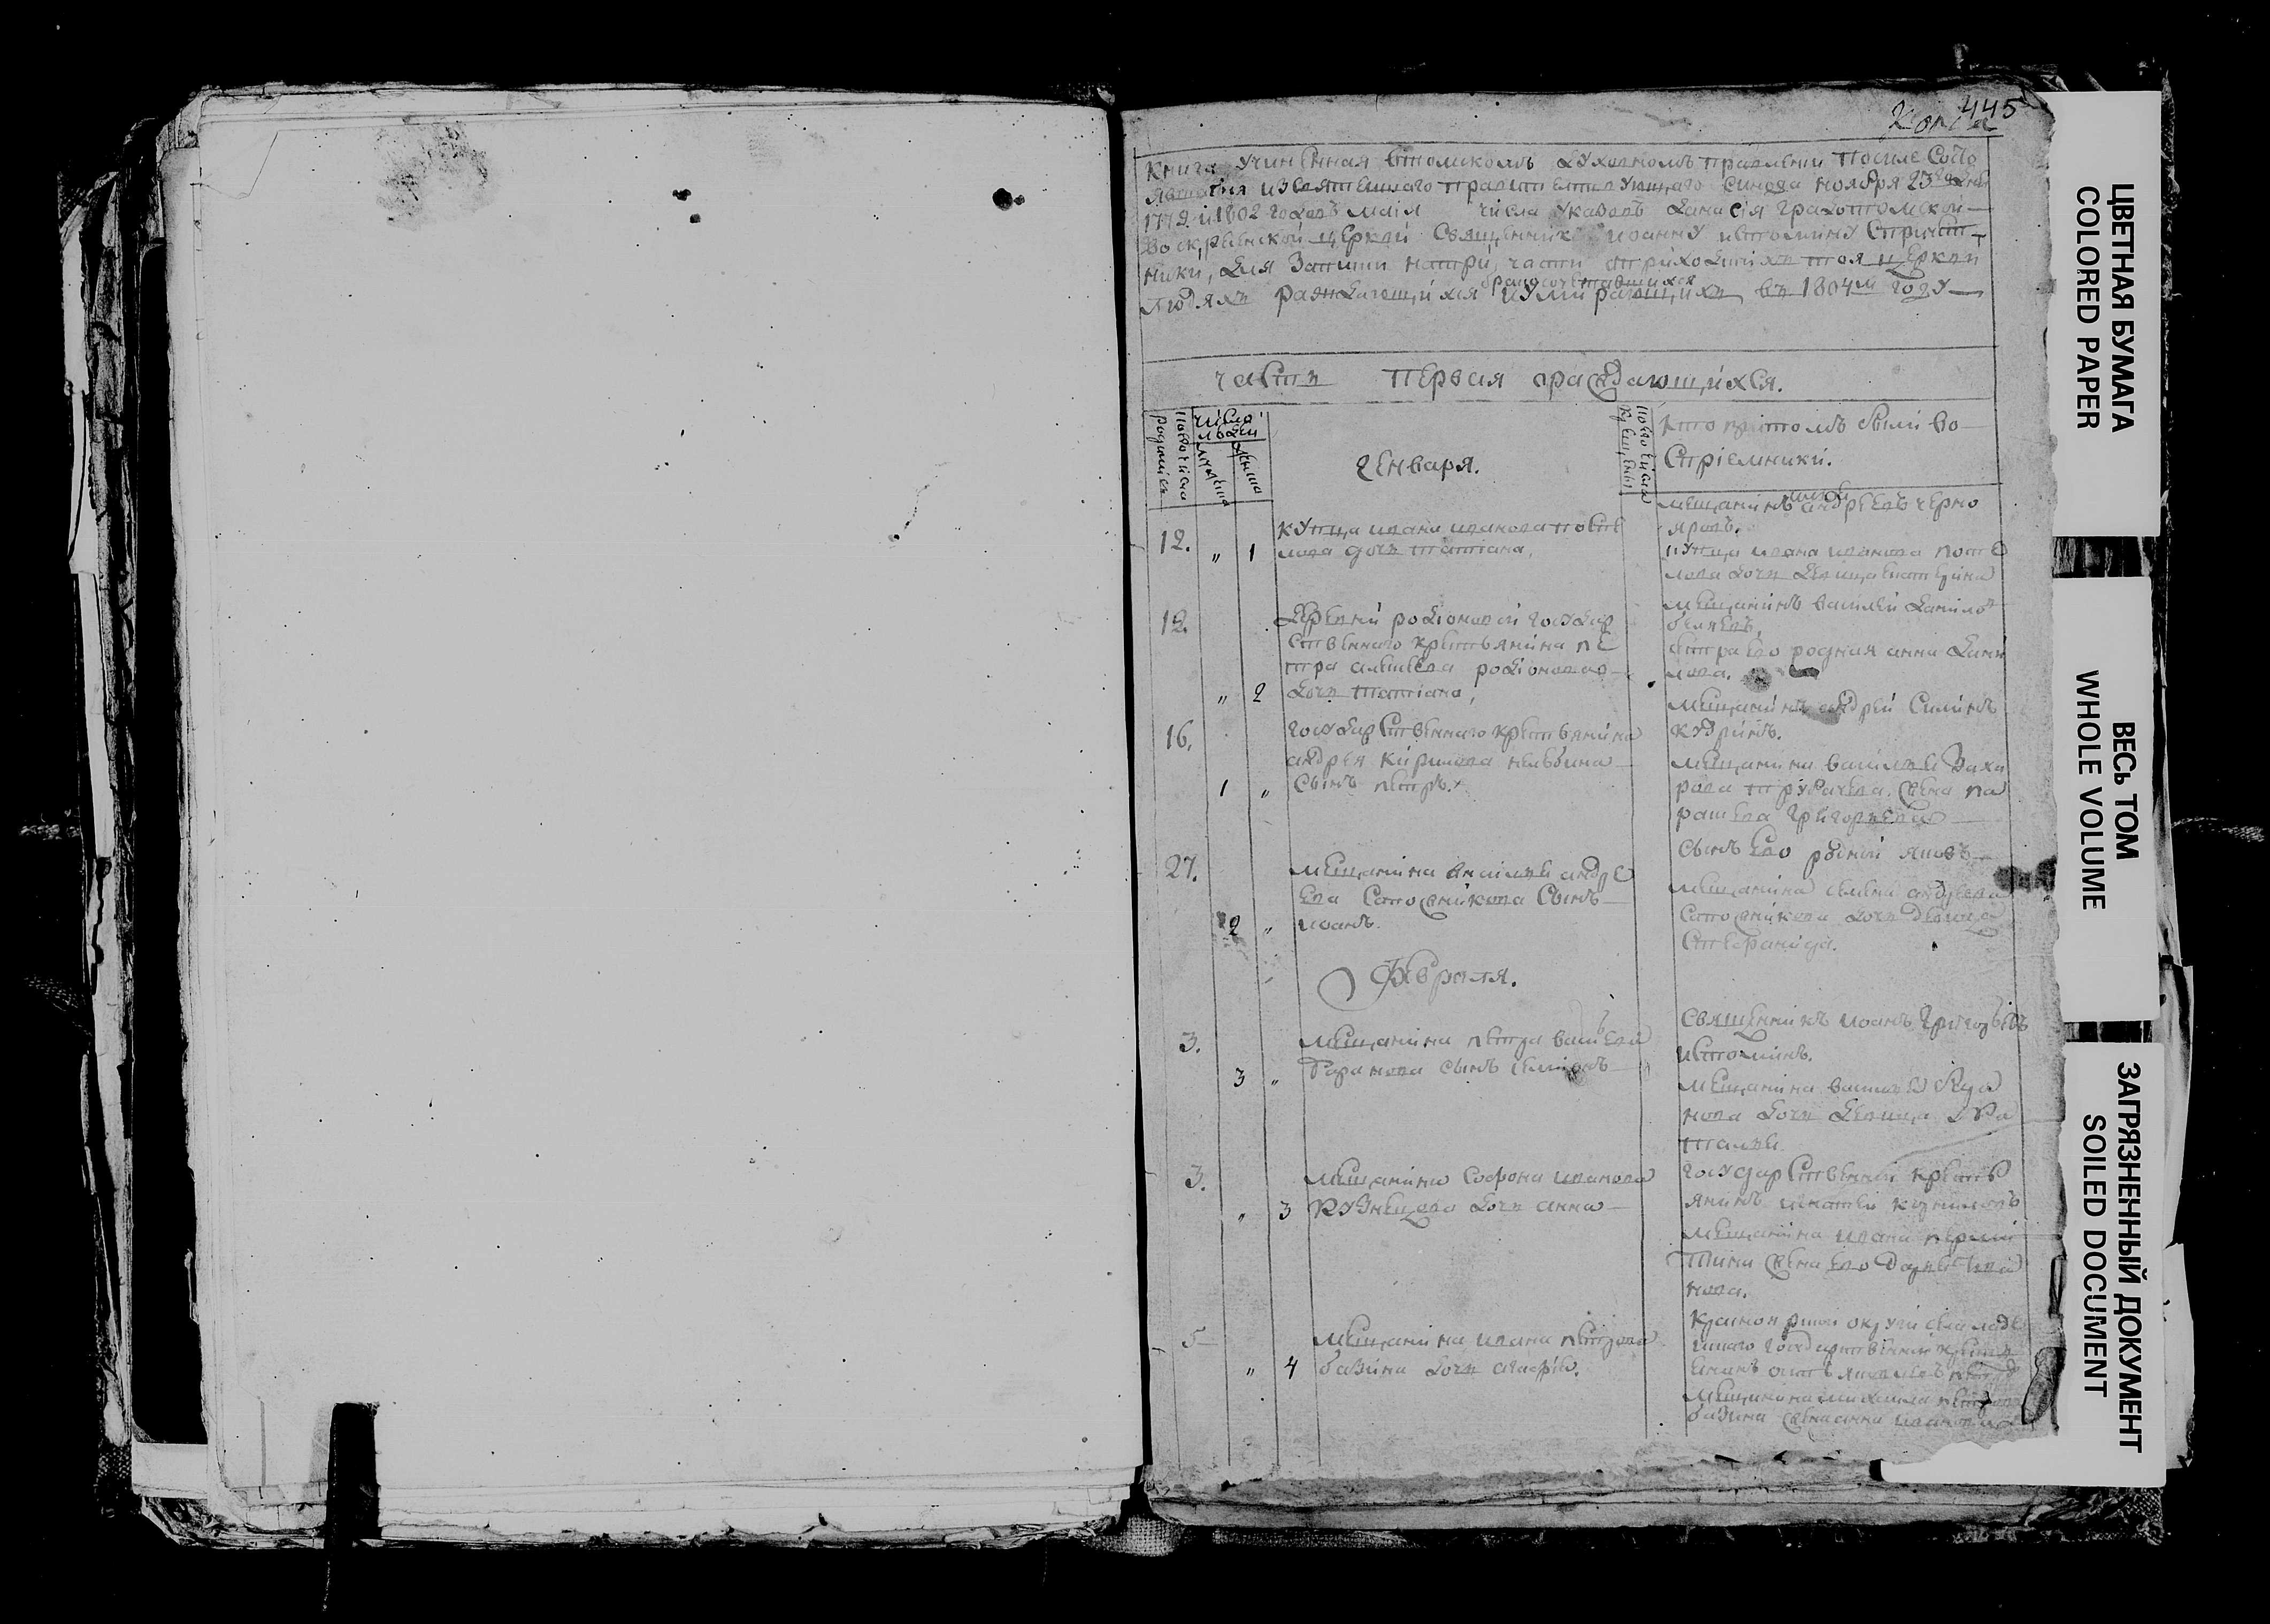 445
Копія
Книга учиненная втомскомъ духовномъ правленіи посиле состо
явшагося изсвятейшаго правителствующаго синода ноября 23го дня
1779 и 1802 годовъ маія числа указовъ данася градотомской
воскресенской церкви священнику иоанну истомину спричет
ники, для записи натри части оприходскихъ тоя церкви
людяхъ раждающихся бракосочетавшихся иумирающихъ въ 1804м году
часть первая ораждающихся.
рождения
котораго числа
число людей
мужеска
женска
генваря.
котораго числа
крещены
кто притомъ были во
спріемники.
12. " 1
купца ивана иванова поте
лова дочь татіана,
мещанинъ андреевъ черно
яровъ.
купца ивана иванова поте
лова дочь девица екатерина
12.
деревни родіоновой государ
ственнаго крестьянина пе
тра алексеева родіонова
" 2 дочь татіана,
мещанинъ василей данилов
беляевъ,
сестра ево родная анна дани
лова.
16.
государственнаго крестьянина
андрея кирилова нелюбина
1 " сынъ петръ.
мещанинъ андрей силинъ
кудринъ.
мещанина василья заха
рова трубачева жена па
расковья григорьева
27.
мещанина василья андре
ева сапожникова сынъ
2 " иоанъ.
сынъ ево родной яковъ
мещанина семена андреева
сапожникова дочь девица
стефанида.
февраля.
3.
мещанина петра васильева
3 " баранова сынъ симеонъ
священникъ иоанъ григорьевъ
истоминъ.
мещанина василья
нова дочь девица
наталья
3.
мещанина софона иванова
" 3 кузнецова дочь анна
государственный кресть
янинъ игнатей
мещанина ивана
тина жена ево дарья ива
нова.
5
мещанина ивана петрова
" 4 бабина дочь агафія.
мещанина михаила петрова
бабина жена анна иванова
ЦВЕТНАЯ БУМАГА
COLORED PAPER
ВЕСЬ ТОМ
WHOLE VOLUME
ЗАГРЯЗНЕННЫЙ ДОКУМЕНТ
SOILED DOCUMENT